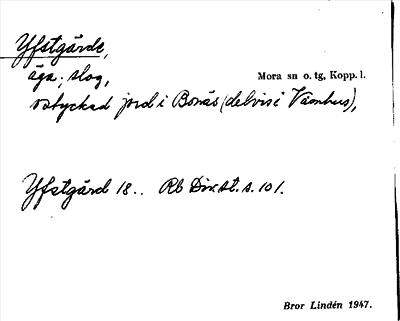 Yfstgärde,
äga; slog,
Mora sn o. tg, Kopp. l.
ostyckad jord i Bonäs (delvis i Våmhus),
Yfstgärd 18.. Rb Div.st. s. 101.
Bror Lindén 1947.